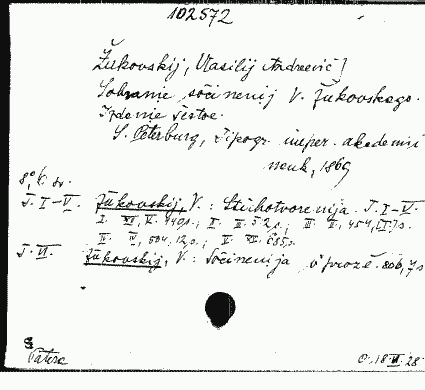 102572
Žukovskij, Vasilij Andreevič]
Sobranie sočinenij V. Žukovskago.
Izdanie šestoe.
S. Peterburg, Tipogr. imper. akademii
nauk, 1869
8,° V. sv.
T. I-V. Žukovskij, V.: Stichotvorenija. T. I-V.
I. XI, V. 440 s.; II. II. 5 2 s.; III. V, 454, II s.
IV. IV, 504. 12 s.; V. XII. 685, s.
T. VI. Žukovskij, V.: Sočinenija v proze. 806, 7 s
S
Patera
O. 18. II. 28